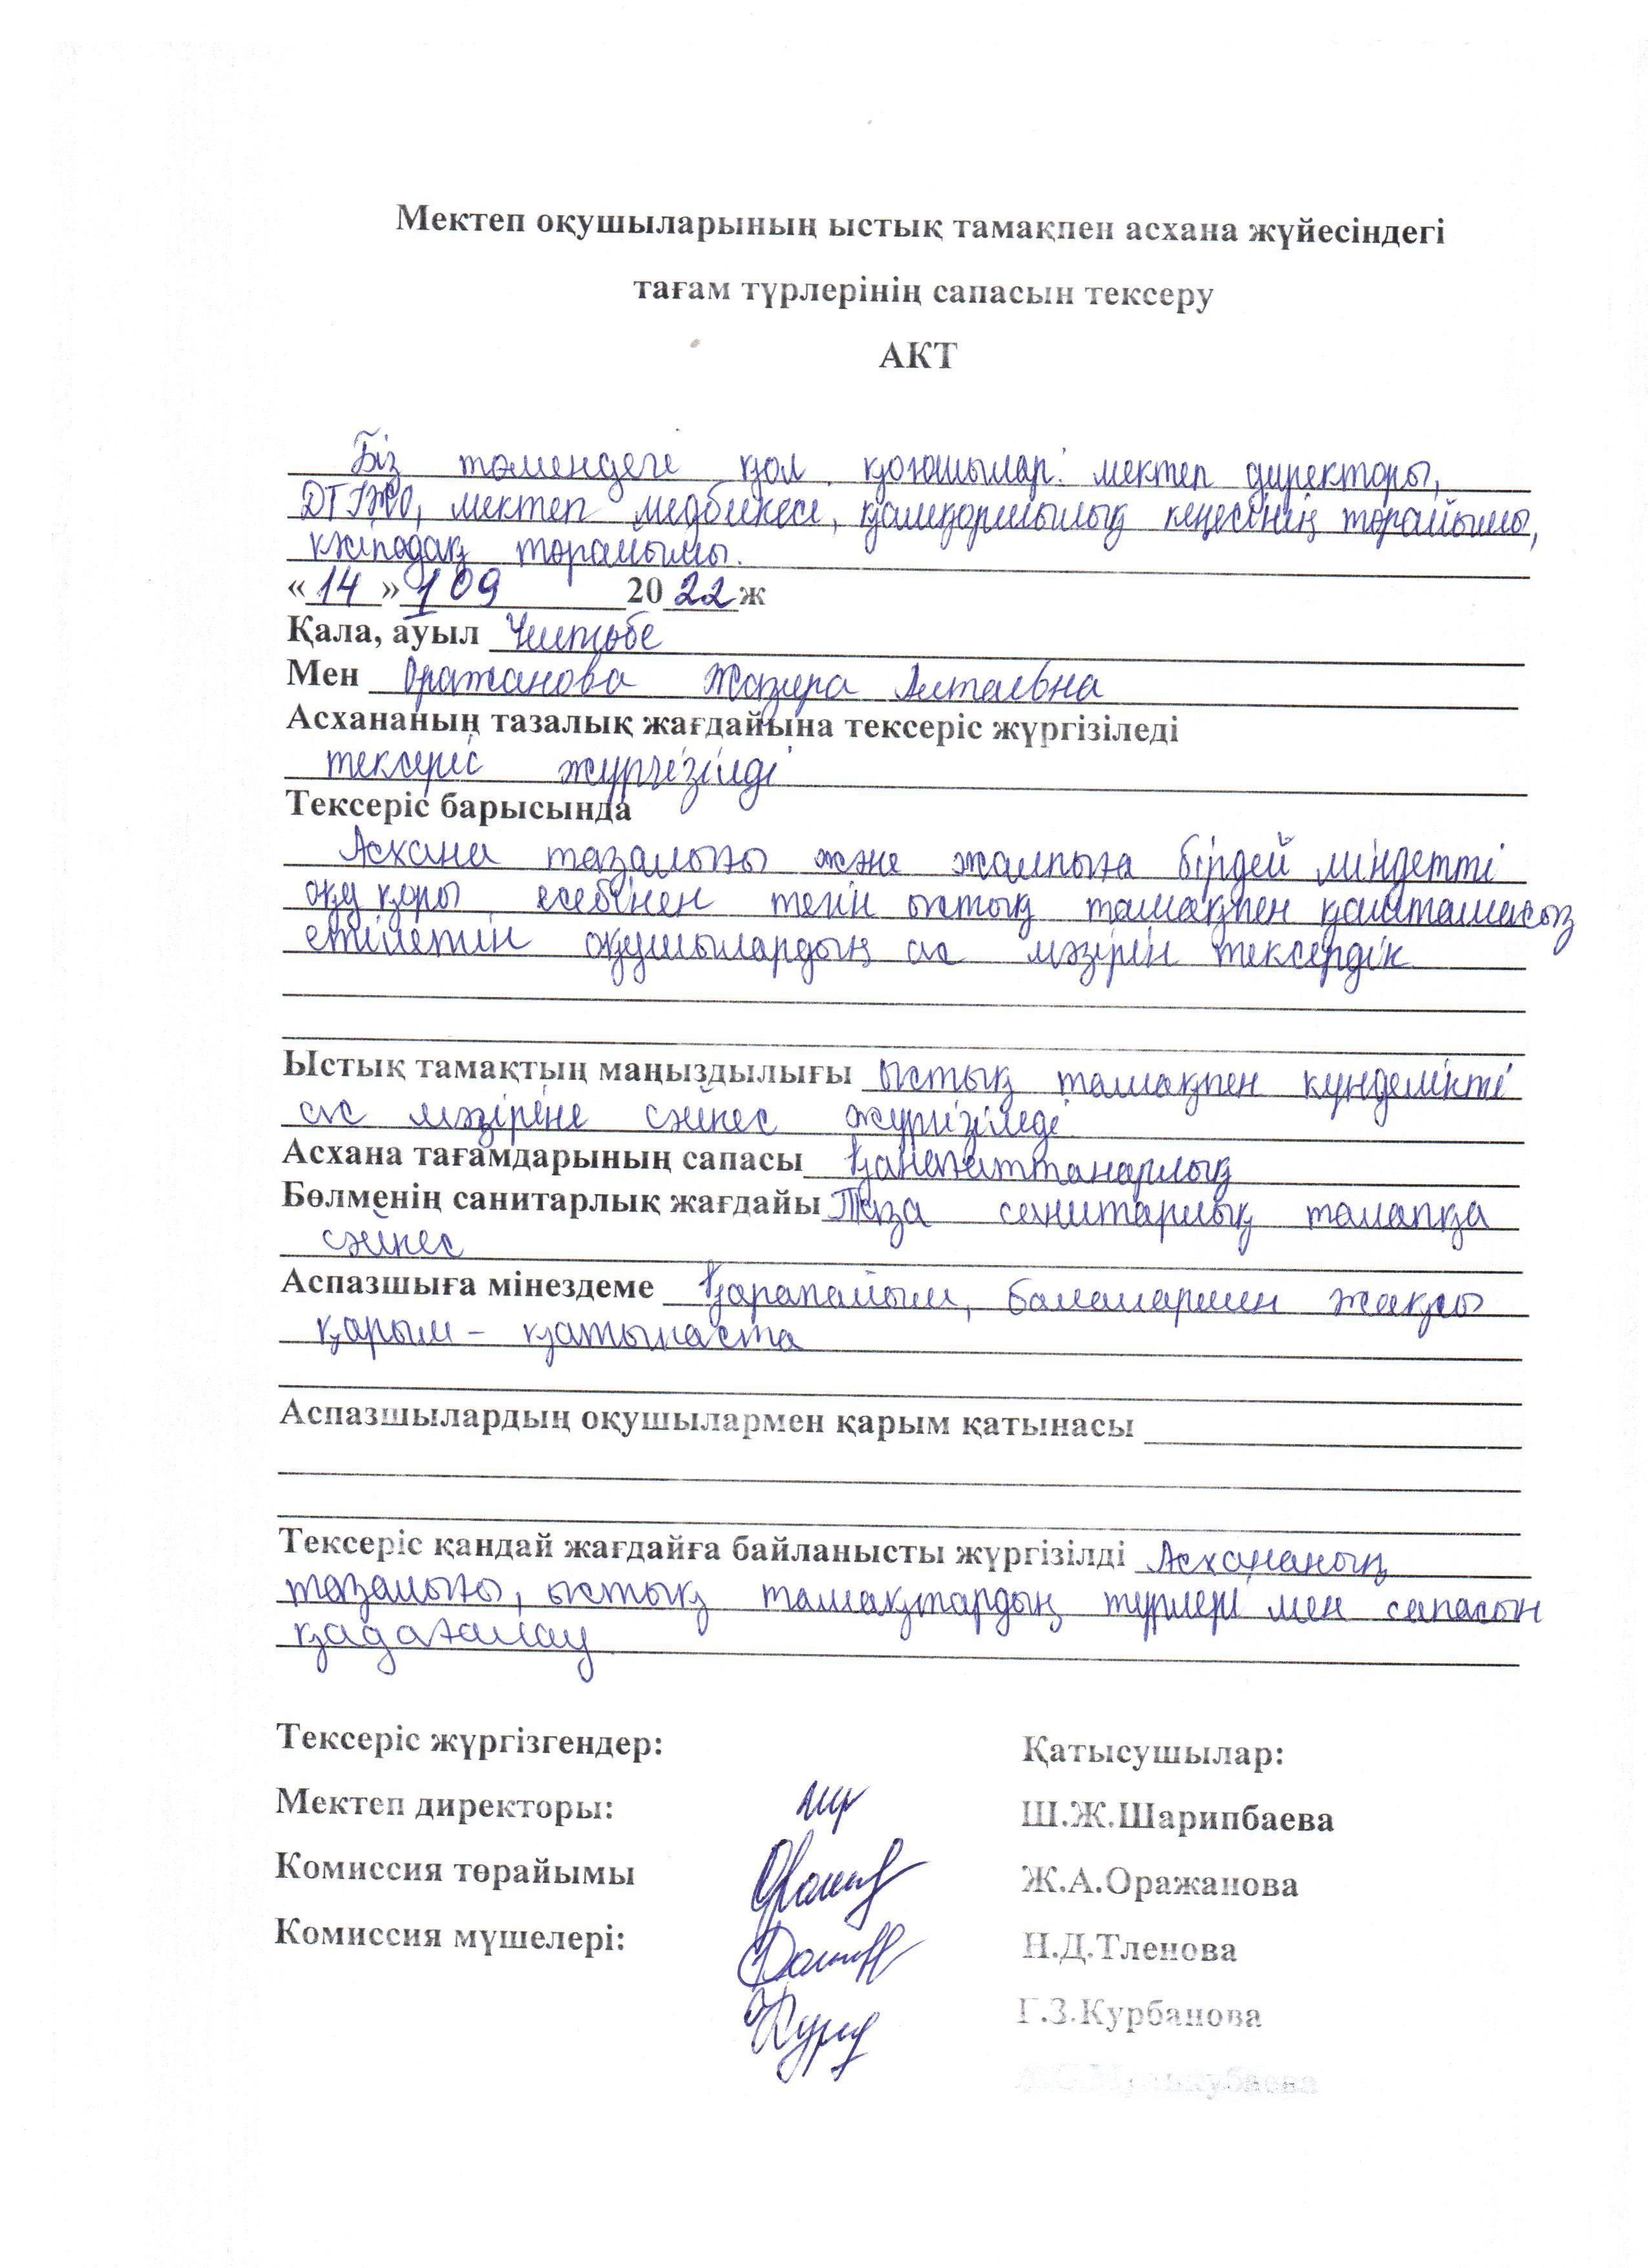 Мектеп оқушыларының ыстық тамақпен асхана жүйесіндегі
тағам түрлерінің сапасын тексеру
АКТ
Біз төмендегі қол қоюшылар: мектеп директоры,
ДТІЖО, мектеп медбикесі, қамқоршылық кеңесінің төрайымы,
кәсіподақ төрайымы.
«14» 09 2022ж
Қала, ауыл Үштөбе
Мен Оражанова Жазира Алтаевна
Асхананың тазалық жағдайына тексеріс жүргізіледі
тексеріс жүргізілді
Тексеріс барысында
Асхана тазалығы және жалпыға бірдей міндетті
оқу қоры есебінен тегін ыстық тамақпен қамтамасыз
етілетін оқушылардың ас мәзірін тексердік
Ыстық тамақтың маңыздылығы ыстық тамақпен күнделікті
ас мәзіріне сәйкес жүргізіледі
Асхана тағамдарының сапасы қанағаттанарлық
Бөлменің санитарлық жағдайы Таза санитарлық талапқа
сәйкес
Аспазшыға мінездеме Қарапайым, балалармен жақсы
қарым - қатынаста
Аспазшылардың оқушылармен қарым қатынасы
Тексеріс қандай жағдайға байланысты жүргізілді Асхананың
тазалығы, ыстық тамақтардың түрлері мен сапасын
қадағалау
Тексеріс жүргізгендер: Қатысушылар:
Мектеп директоры: Ш.Ж.Шарипбаева
Комиссия төрайымы Ж.А.Оражанова
Комиссия мүшелері: Н.Д.Тленова
Г.З.Курбанова